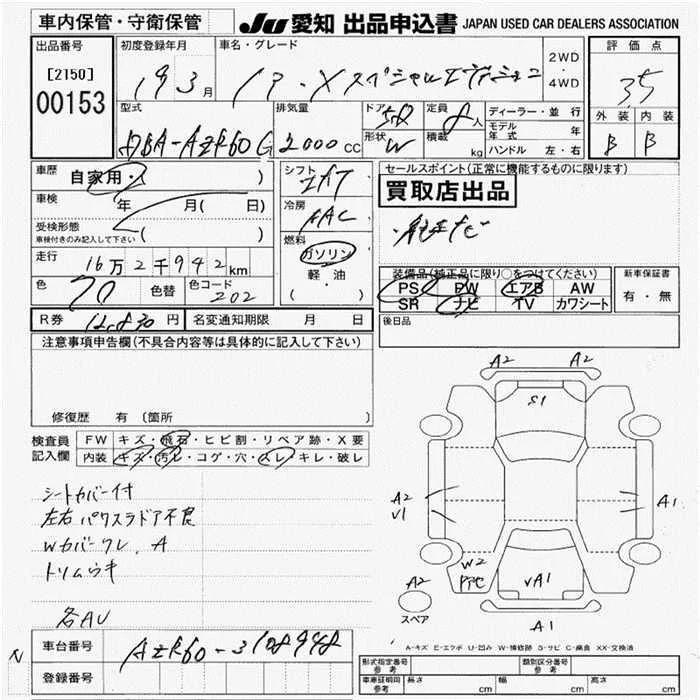 車内保管・守衛保管
JU 愛知 出品申込書 JAPAN USED CAR DEALERS ASSOCIATION
出品番号
[2150]
00153
初度登録年月
19 3月
車名・グレード
2WD
・
4WD
評価点
3.5
外装 内装
B B
型式
DBA-AZR60G
排気量
2000 cc
ドア 5D
形状 W
定員 8人
積載 kg
ディーラー・並行
モデル年式 年
ハンドル 左・右
車歴
自家用・( )
車検
年 月( 日)
受検形態
車検付きのみ記入して下さい
( )
走行
16万2千942km
色
黒
色替
色コード
202
シフト
IAT
冷房
AAC
燃料
ガソリン
軽・油
( )
セールスポイント(正常に機能するものに限ります)
買取店出品
・純正ナビ
装備品(純正品に限り○をつけてください)
PS PW エアB AW
SR ナビ TV カワシート
新車保証書
有・無
R券 12,830円
名変通知期限 月 日
後日品
注意事項申告欄(不具合内容等は具体的に記入して下さい)
修復歴 有 (箇所
検査員
記入欄
FW キズ・飛石・ヒビ割・リペア跡・X要
内装 キズ・汚レ・コゲ・穴・スレ・キレ・破レ
シートカバー付
左右パワスラドア不良
Wカバーワレ、A
トリムウキ
各AU
A2 A2
S1
A2
V1
A1
W2
VA1
A2
スペア
A1
A-キズ E-エクボ U-凹み W-補修跡 S-サビ C-腐食 XX-交換済
N
車台番号
AZR60-3108948
登録番号
形式指定番号
参考
類別区分番号
参考
車庫証明用
参考
長さ cm
幅 cm
高さ cm